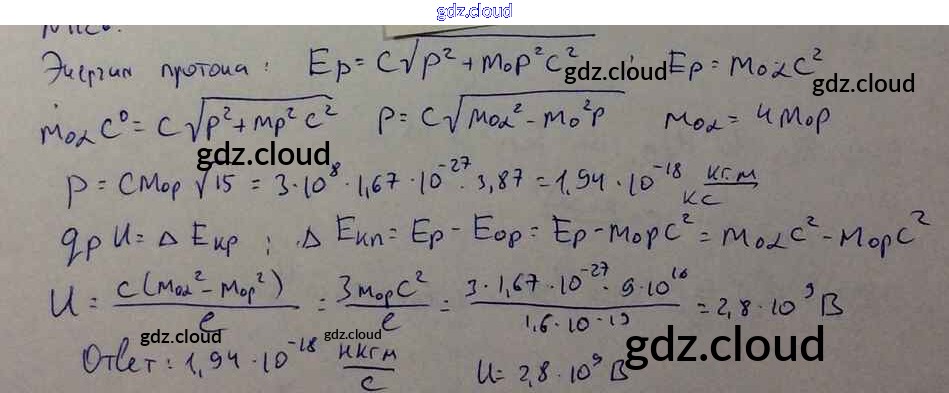 gdz.cloud
Энергия протона: Eр = c√p² + m₀p²c² ; Eр = m₀αc²
gdz.cloud gdz.cloud
m₀αc⁰ = c√p² + mp²c² p = c√m₀α² - m₀²p m₀α = 4m₀p
gdz.cloud
p = cm₀p√15 = 3·10⁸·1,67·10⁻²⁷·3,87 = 1,94·10⁻¹⁸ кг.м/кс
qpU = ΔEкр ; ΔEкп = Eр - E₀р = Eр - m₀pc² = m₀αc² - m₀pc²
U = c(m₀α² - m₀p²)/e = 3m₀pc²/e = 3·1,67·10⁻²⁷·9·10¹⁶/1,6·10-19 = 2,8·10⁹ В
gdz.cloud gdz.cloud gdz.cloud
Ответ: 1,94·10⁻¹⁸ нкгм/с U = 2,8·10⁹ В